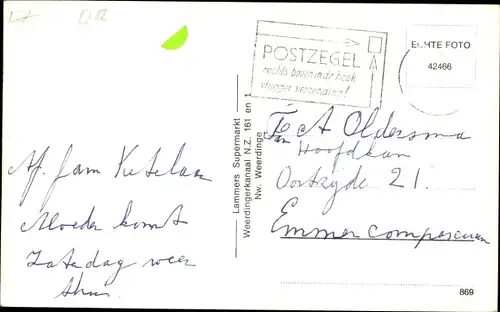 DR
POSTZEGEL
rechts boven in de hoek
vlugger verzending!
ECHTE FOTO
42466
Lammers Supermarkt
Weerdingerkanaal N.Z. 161 en 1
Nw. Weerdinge
Af. fam Ketelaar
Moeder komt
Zaterdag weer
thuis.
Fam A Oldersma
Hoofdkan
Oostzijde 21.
Emmer compascuum
869